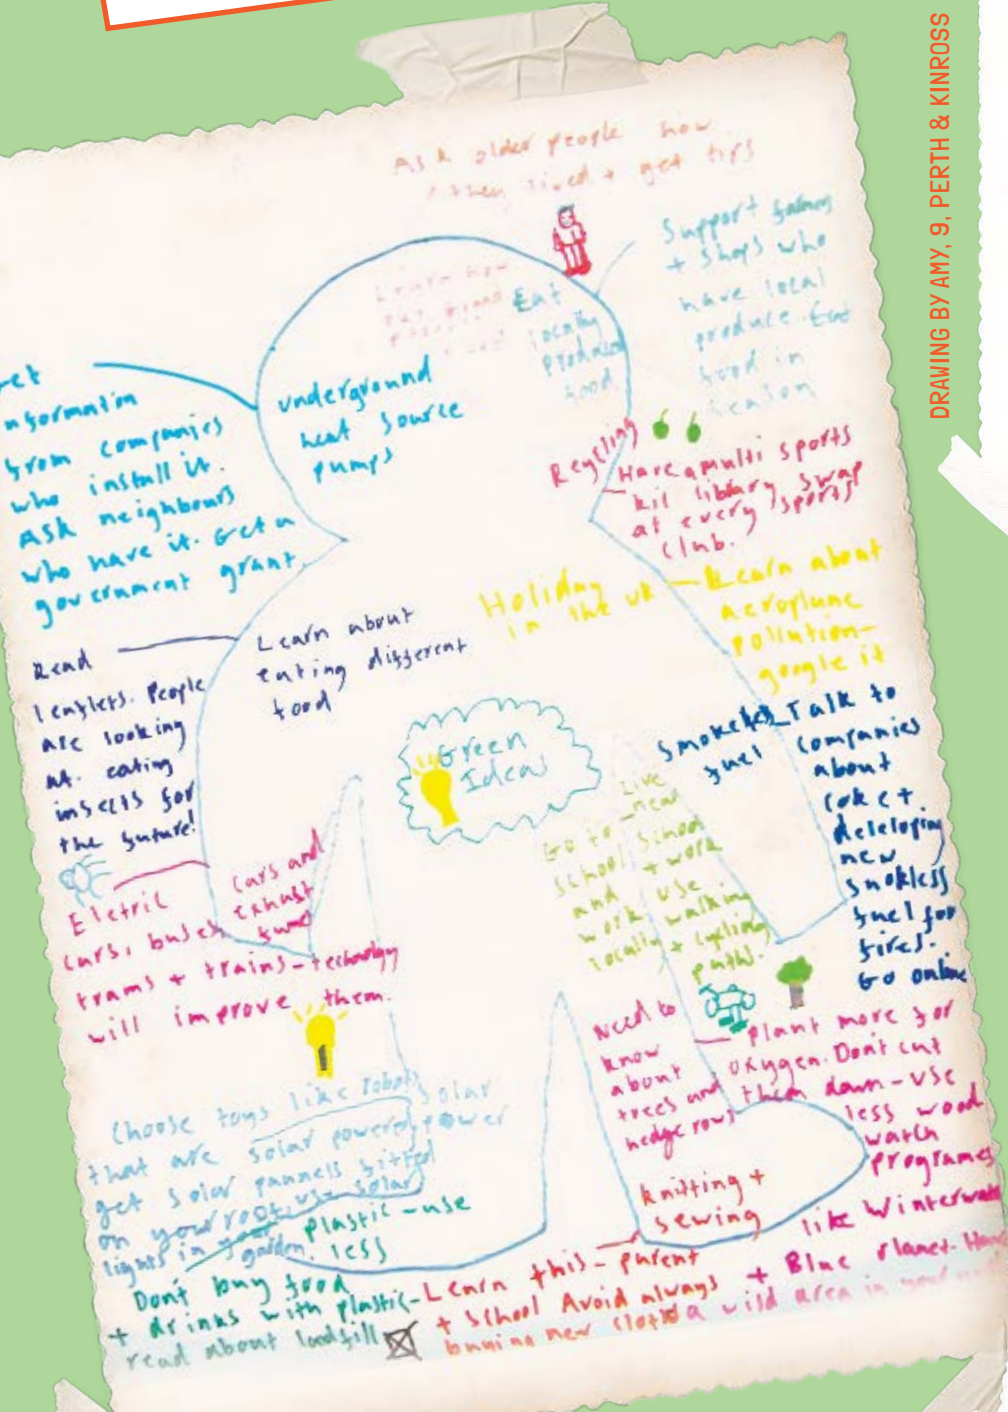 DRAWING BY AMY, 9, PERTH & KINROSS
Ask older people how
they lived + get tips
Support farmers
+ shops who
have local
produce. Eat
food in
season
Learn how
Eat
locally
produced
food.
et
nformation
from companies
who install it.
Ask neighbours
who have it. Get a
government grant.
underground
heat source
pumps
Recycling
Have a multi sports
kit library swap
at every sports
club.
Holiday
in the uk
Learn about
aeroplane
pollution-
google it
Read
leaflets. People
are looking
at eating
insects for
the future!
Learn about
eating different
food
Green
Ideas
Smokeless
fuel
Talk to
companies
about
coke +
deleloping
new
smokless
fuel for
fires.
Go online
Go to
school
and
work
locally
Live
near
School
+ work
use
walking
+ cycling
paths.
Cars and
exhust
fumes
Eletric
cars, buses
trams + trains - technology
will improve them.
Need to
know
about
trees and
hedgerows
plant more for
oxygen. Dont cut
them down - use
less wood
watch
programes
like Winterwatch
+ Blue Planet. Have
a wild area in your
Solar
power
Choose toys like robots
that are solar powered,
get solar pannels fitted
on your roof, use solar
lights in your garden.
plastic - use
less
Don't buy food
+ drinks with plastic -
read about landfill
knitting +
sewing
Learn this - parent
+ school Avoid always
buying new clothes